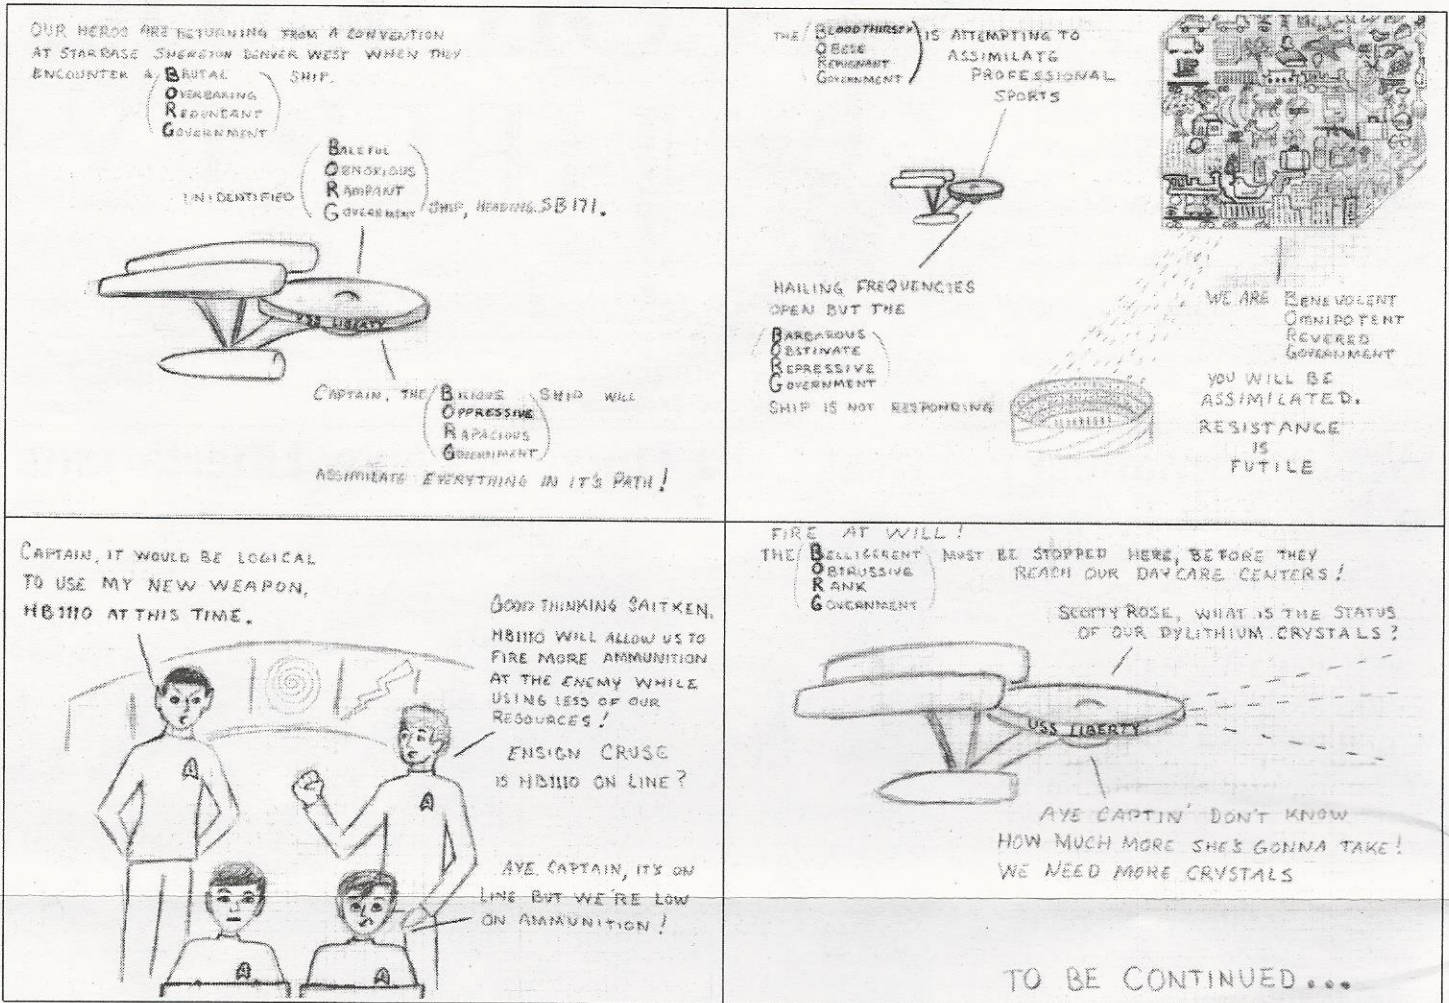 OUR HEROS ARE RETURNING FROM A CONVENTION
AT STARBASE SHERETON DENVER WEST WHEN THEY
ENCOUNTER A BRUTAL SHIP.
OVERBARING
REDUNDANT
GOVERNMENT
BALEFUL
OBNOXIOUS
RAMPANT
UNIDENTIFIED GOVERNMENT SHIP, HEADING SB171.
USS LIBERTY
CAPTAIN, THE BILIOUS SHIP WILL
OPPRESSIVE
RAPACIOUS
GOVERNMENT
ASSIMILATE EVERYTHING IN IT'S PATH!
THE BLOODTHIRSTY IS ATTEMPTING TO
OBESE ASSIMILATE
REPUGNANT PROFESSIONAL
GOVERNMENT SPORTS
HAILING FREQUENCIES
OPEN BUT THE
BARBAROUS
OBSTINATE
REPRESSIVE
GOVERNMENT
SHIP IS NOT RESPONDING
WE ARE BENEVOLENT
OMNIPOTENT
REVERED
GOVERNMENT
YOU WILL BE
ASSIMILATED.
RESISTANCE
IS
FUTILE
CAPTAIN, IT WOULD BE LOGICAL
TO USE MY NEW WEAPON,
HB1110 AT THIS TIME.
GOOD THINKING SAITKEN.
HB1110 WILL ALLOW US TO
FIRE MORE AMMUNITION
AT THE ENEMY WHILE
USING LESS OF OUR
RESOURCES!
ENSIGN CRUSE
IS HB1110 ON LINE?
AYE CAPTAIN, IT'S ON
LINE BUT WE'RE LOW
ON AMMUNITION!
FIRE AT WILL!
THE BELLIGERENT MUST BE STOPPED HERE, BEFORE THEY
OBTRUSSIVE REACH OUR DAYCARE CENTERS!
RANK
GOVERNMENT
SCOTTY ROSE, WHAT IS THE STATUS
OF OUR DYLITHIUM CRYSTALS?
USS LIBERTY
AYE CAPTIN' DON'T KNOW
HOW MUCH MORE SHE'S GONNA TAKE!
WE NEED MORE CRYSTALS
TO BE CONTINUED...